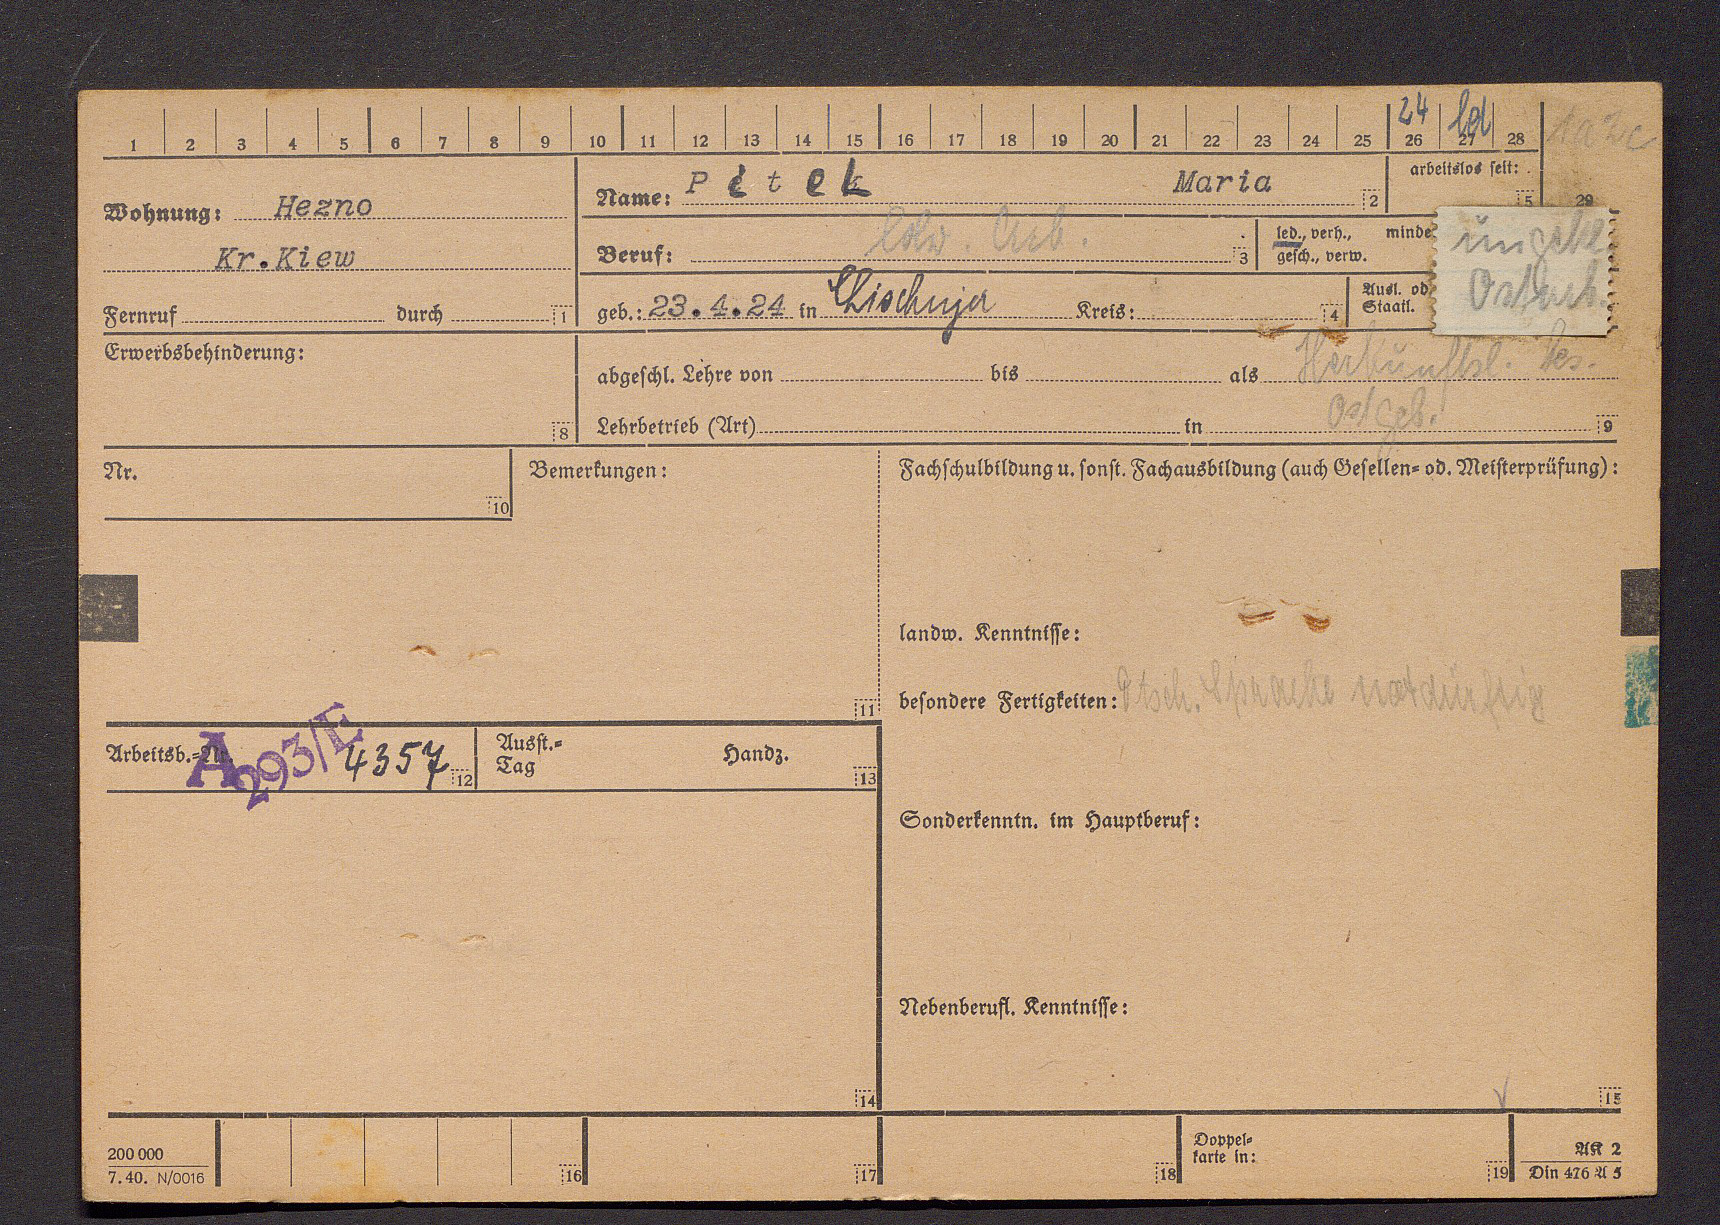 1 2 3 4 5 6 7 8 9 10 11 12 13 14 15 16 17 18 19 20 21 22 23 24 25 26 27 28
24 led
1a 2c
Wohnung: Hezno
Kr. Kiew
Fernruf durch 1
Name: Pitek Maria 2
arbeitslos seit: 5
29
Beruf: ldw. Arb. 3
led., verh., minde
gesch., verw.
geb.: 23.4.24 in Kreis: 4
Ausl. od
Staatl.
ungel.
Ostarb.
Erwerbsbehinderung:
8
abgeschl. Lehre von bis als Herkunftsl. bes.
Ostgeb.
Lehrbetrieb (Art) in 9
Nr.
10
Bemerkungen:
11
Fachschulbildung u. sonst. Fachausbildung (auch Gesellen= od. Meisterprüfung):
landw. Kenntnisse:
besondere Fertigkeiten: Dtsch. Sprache notdürftig
Arbeitsb.=Nr. A 293/E 4357 12
Ausst.=
Tag
Handz.
13
Sonderkenntn. im Hauptberuf:
Nebenberufl. Kenntnisse:
14
15
200 000
7.40. N/0016
16
17
18
Doppel=
karte in:
19
AK 2
Din 476 A 5